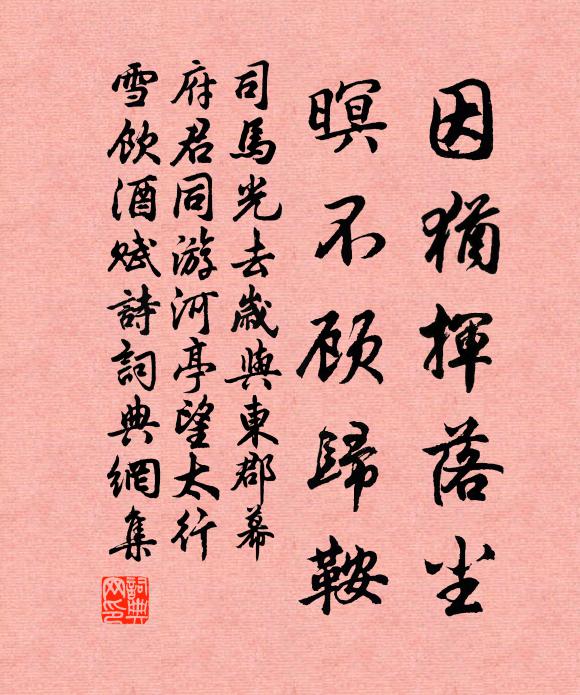 因猶揮落尘
暝不顾歸鞍
司馬光去歲與東郡幕
府君同游河亭望太行
雪飲酒賦詩詞典網集
詞典
网印